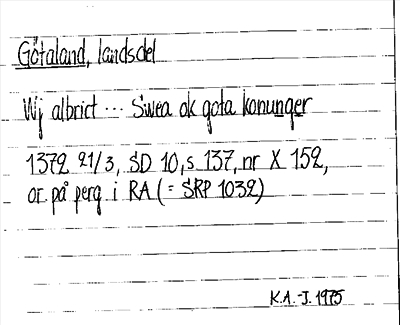 Götaland, landsdel
Wj albrict ... Swea ok gota konunger
1372 21/3, SD 10, s 137, nr X 152,
or på perg i RA (= SRP 1032)
K.A.-J. 1975